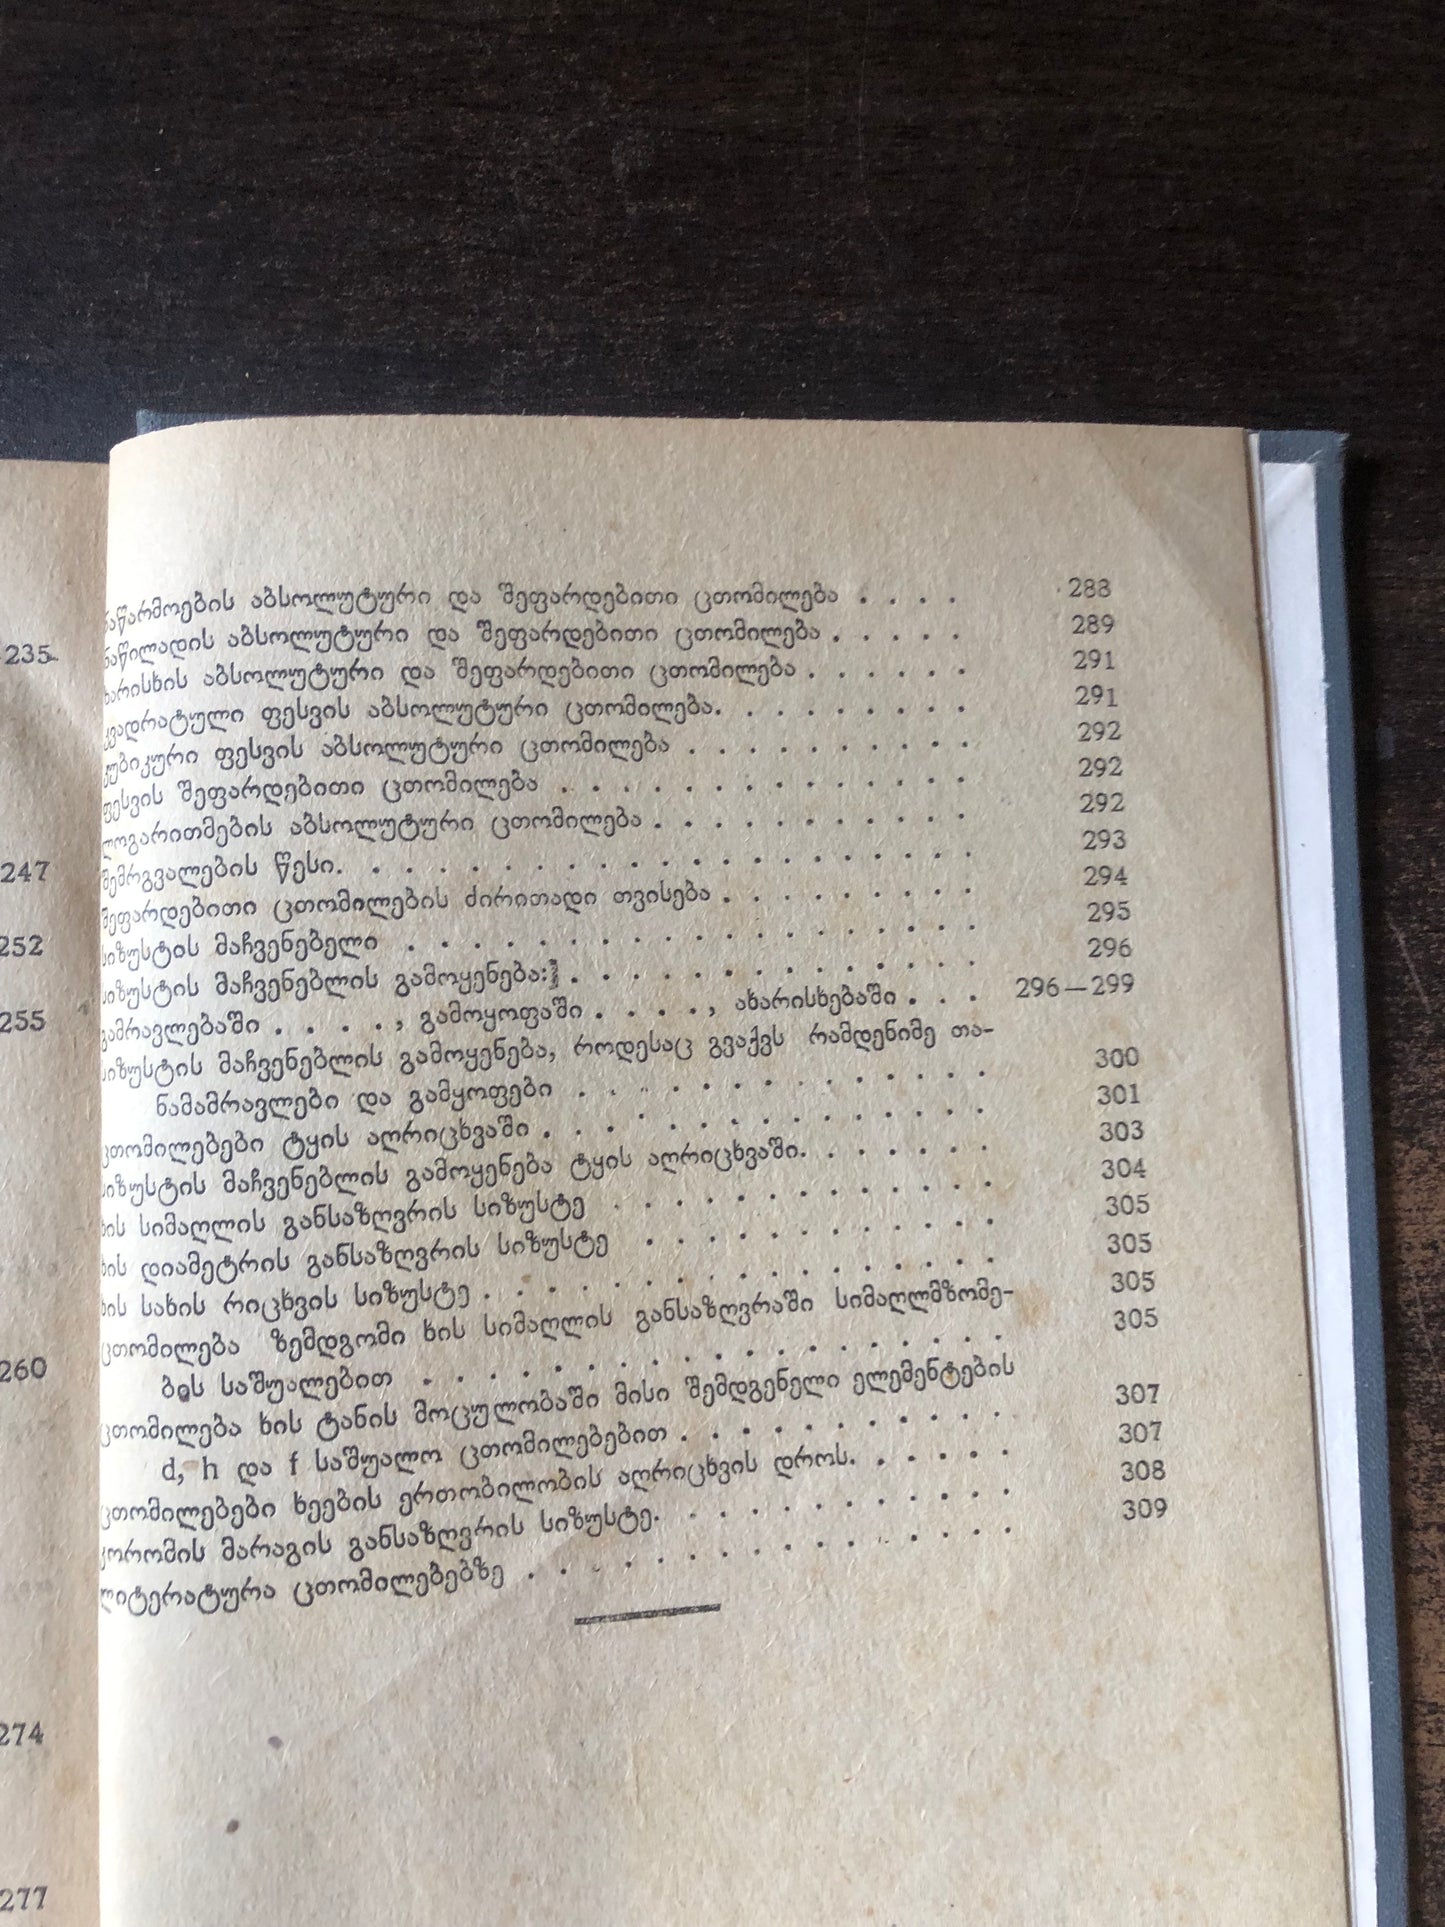 235
247
252
255
260
274
277
ნაწარმოების აბსოლუტური და შეფარდებითი ცთომილება . . . . 288
ნაწილადის აბსოლუტური და შეფარდებითი ცთომილება . . . . . 289
ხარისხის აბსოლუტური და შეფარდებითი ცთომილება . . . . . . 291
კვადრატული ფესვის აბსოლუტური ცთომილება. . . . . . . . . 291
კუბიკური ფესვის აბსოლუტური ცთომილება . . . . . . . . . . 292
ფესვის შეფარდებითი ცთომილება . . . . . . . . . . . . . . 292
ლოგარითმების აბსოლუტური ცთომილება . . . . . . . . . . . 292
შემრგვალების წესი. . . . . . . . . . . . . . . . . . . . 293
შეფარდებითი ცთომილების ძირითადი თვისება . . . . . . . . 294
სიზუსტის მაჩვენებელი . . . . . . . . . . . . . . . . . . 295
სიზუსტის მაჩვენებლის გამოყენება: . . . . . . . . . . . . . 296
გამრავლებაში . . . . , გამოყოფაში . . . . , ახარისხებაში . . . 296—299
სიზუსტის მაჩვენებლის გამოყენება, როდესაც გვაქვს რამდენიმე თა-
ნამამრავლები და გამყოფები . . . . . . . . . . . . . 300
ცთომილებები ტყის აღრიცხვაში . . . . . . . . . . . . . . 301
სიზუსტის მაჩვენებლის გამოყენება ტყის აღრიცხვაში. . . . . . . 303
ხის სიმაღლის განსაზღვრის სიზუსტე . . . . . . . . . . . . 304
ხის დიამეტრის განსაზღვრის სიზუსტე . . . . . . . . . . . 305
ხის სახის რიცხვის სიზუსტე . . . . . . . . . . . . . . . . 305
ცთომილება ზემდგომი ხის სიმაღლის განსაზღვრაში სიმაღლმზომე- 305
ბის საშუალებით . . . . . . . . . . . . . . . . . . 305
ცთომილება ხის ტანის მოცულობაში მისი შემდგენელი ელემენტების
d, h და f საშუალო ცთომილებებით . . . . . . . . . . 307
ცთომილებები ხეების ერთობილობის აღრიცხვის დროს. . . . . . 307
კორომის მარაგის განსაზღვრის სიზუსტე. . . . . . . . . . . . 308
ლიტერატურა ცთომილებებზე . . . . . . . . . . . . . . . 309